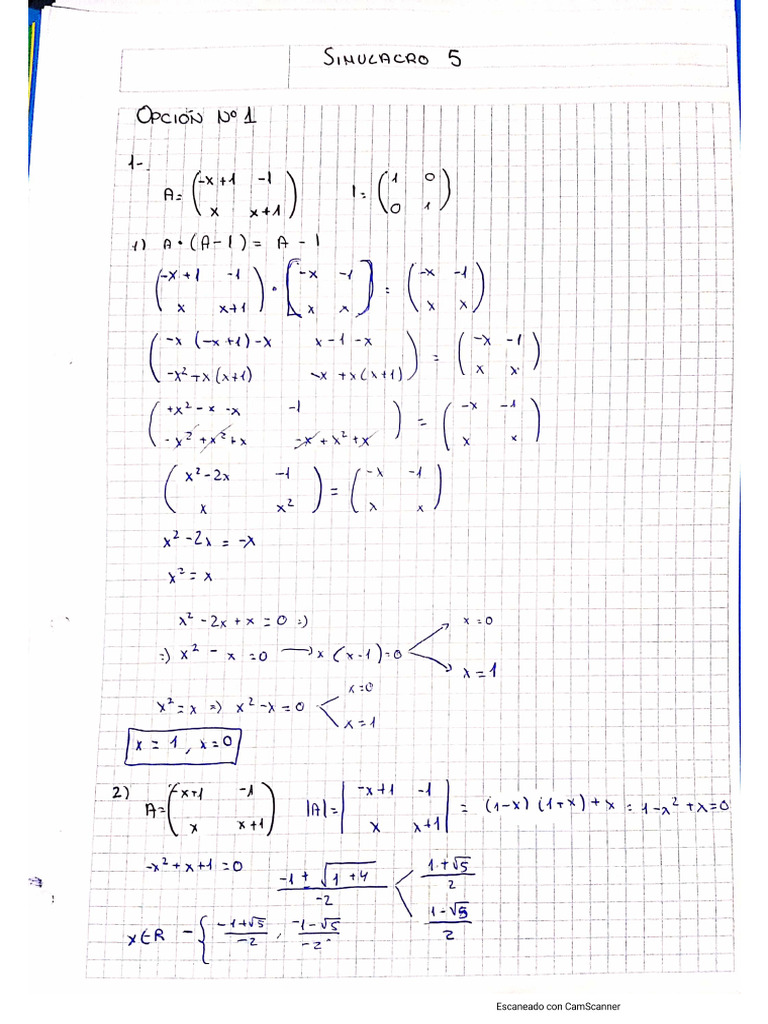 SIMULACRO 5
OPCIÓN Nº 1
1-.
A= (-x+1 -1
x x+1) I= (1 0
0 1)
1) A·(A-I) = A - I
(-x+1 -1
x x+1) · [-x -1
x x] = (-x -1
x x)
(-x(-x+1)-x x-1-x
-x²+x(x+1) -x+x(x+1)) = (-x -1
x x)
(+x²-x-x -1
-x²+x²+x -x+x²+x) = (-x -1
x x)
(x²-2x -1
x x²) = (-x -1
x x)
x²-2x = -x
x² = x
x²-2x+x=0 =)
=) x²-x=0 → x(x-1)=0
x=0
x=1
x²=x =) x²-x=0
x=0
x=1
x=1, x=0
2) A= (-x+1 -1
x x+1) |A|= |-x+1 -1
x x+1| = (1-x)(1+x)+x = 1-x²+x=0
-x²+x+1=0
-1±√1+4
-2
1+√5
2
1-√5
2
x∈R - { -1+√5
-2 , -1-√5
-2
Escaneado con CamScanner